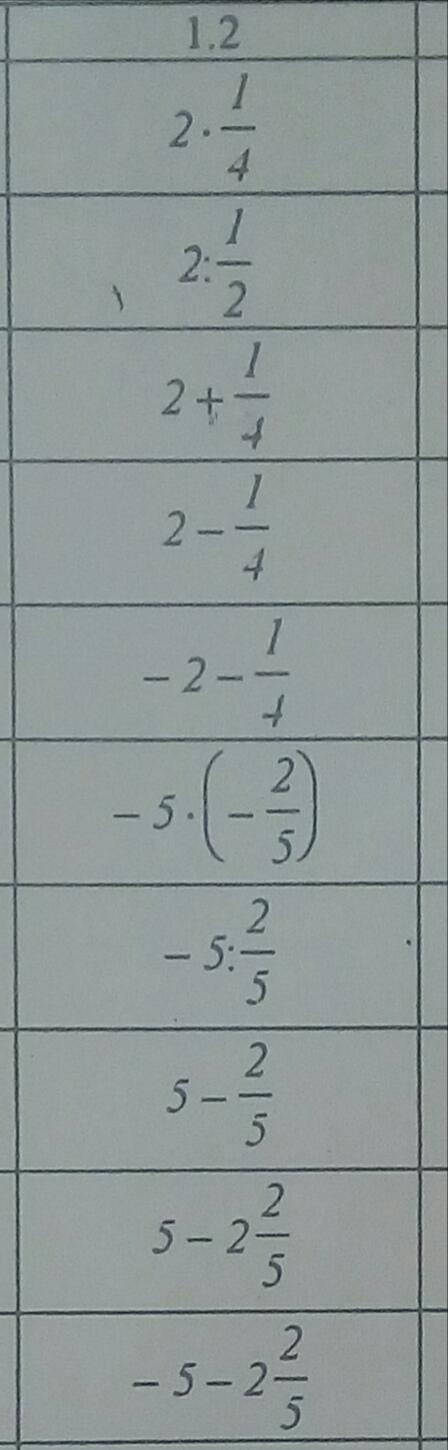 1.2
2 · 1/4
2 : 1/2
2 + 1/4
2 − 1/4
− 2 − 1/4
− 5 · (− 2/5)
− 5 : 2/5
5 − 2/5
5 − 2 2/5
− 5 − 2 2/5